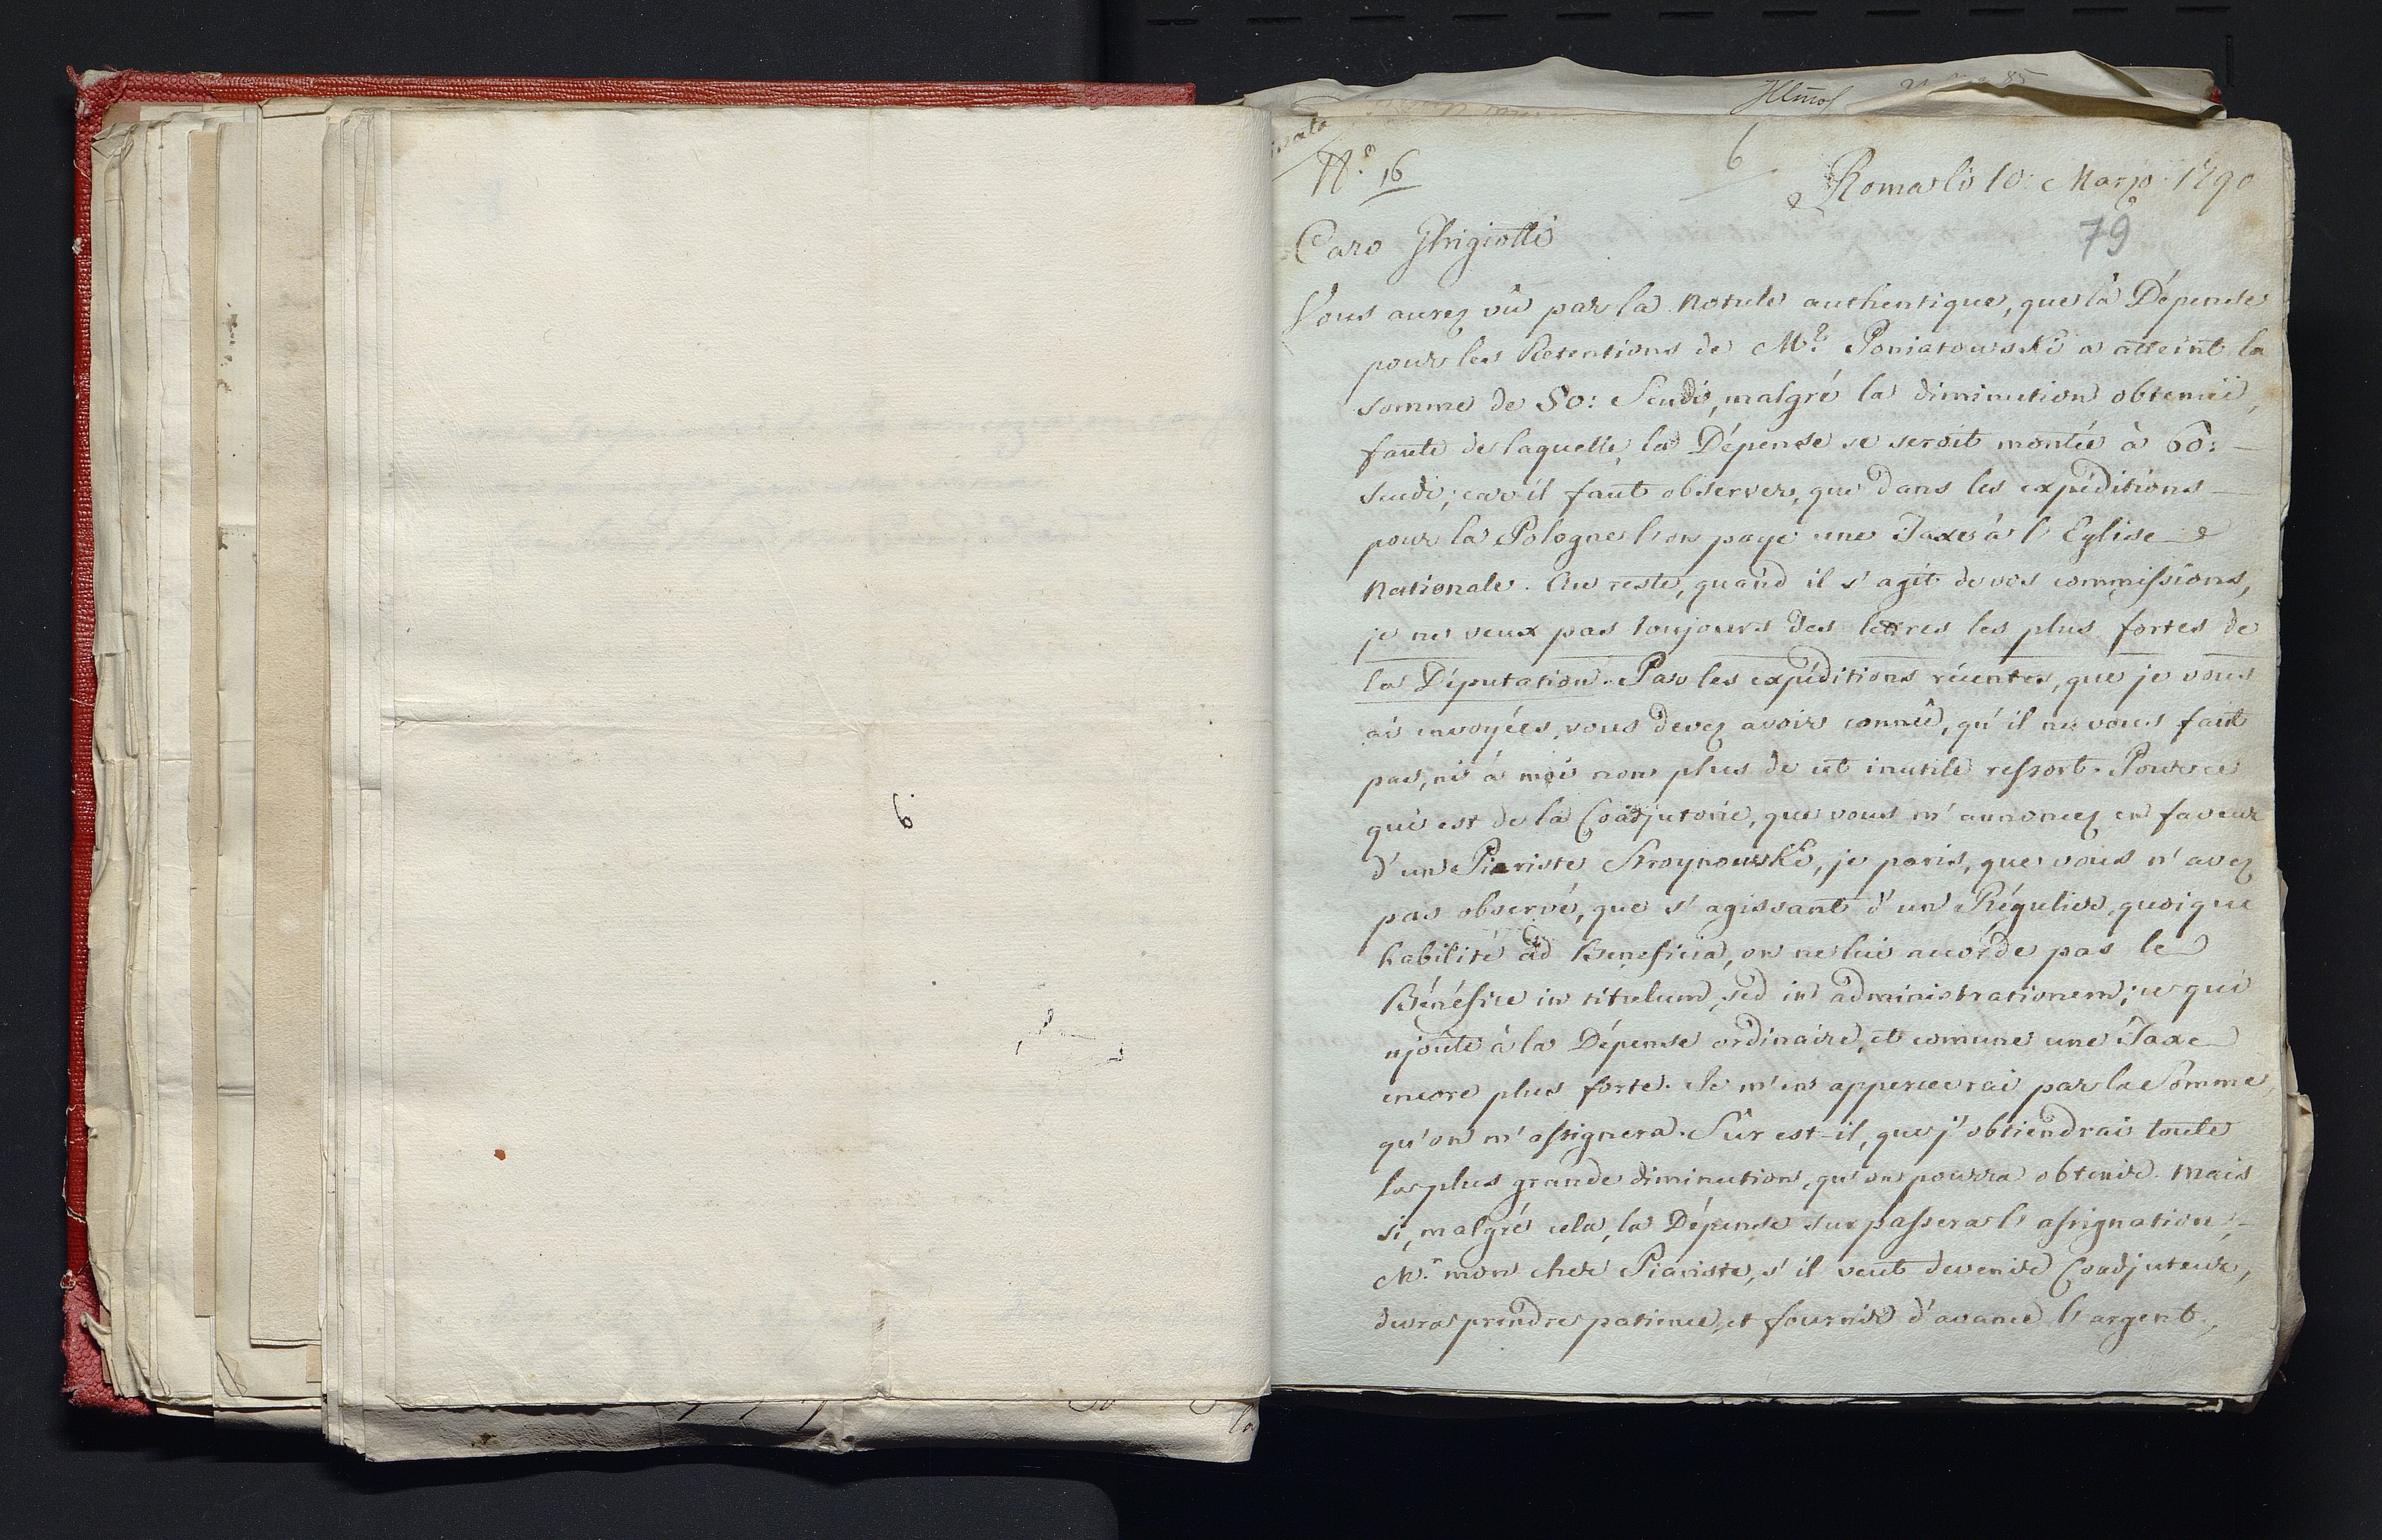 6.
Illmo
N.º 16
6
Roma li 10: Marzo 1790
79
Caro Ghigiotti
Vous aurez vû par la Notule authentique, que la Dépense
pour les Retentions de M.r Poniatowski a atteint la
somme de 50: Scudi, malgré la diminution obtenüe,
faute de laquelle, la Dépense se seroit montée à 60:
Scudi; car il faut observer, que dans les expéditions
pour la Pologne l'on paye une Taxe à l'Eglise
Nationale. Au reste, quand il s'agit de vos commissions,
je ne veux pas toujours des lettres les plus fortes de
la Députation. Par les expéditions récentes, que je vous
ai envoyées, vous devez avoir connû, qu'il ne vous faut
pas, ni à moi non plus de cet inutile ressort. Pour ce
qui est de la Coadjutorie, que vous m'annoncez en faveur
d'un Piariste Stroynowski, je paris, que vous n'avez
pas observé, que s'agissant d'un Régulier, quoique
habilité ad Beneficia, on ne lui accorde pas le
Bénéfice in titulum, sed in administrationem; ce qui
ajoute à la Dépense ordinaire, et comune une Taxe
encore plus forte. Je m'en appercevrai par la Somme,
qu'on m'assignera. Sûr est-il, que j'obtiendrai toute
la plus grande diminution, qu'on pourra obtenir. Mais
si, malgré cela, la Dépense surpassera l'assignation,
M.r mon cher Piariste, s'il veut devenir Coadjuteur,
devra prendre patience, et fournir d'avance l'argent,